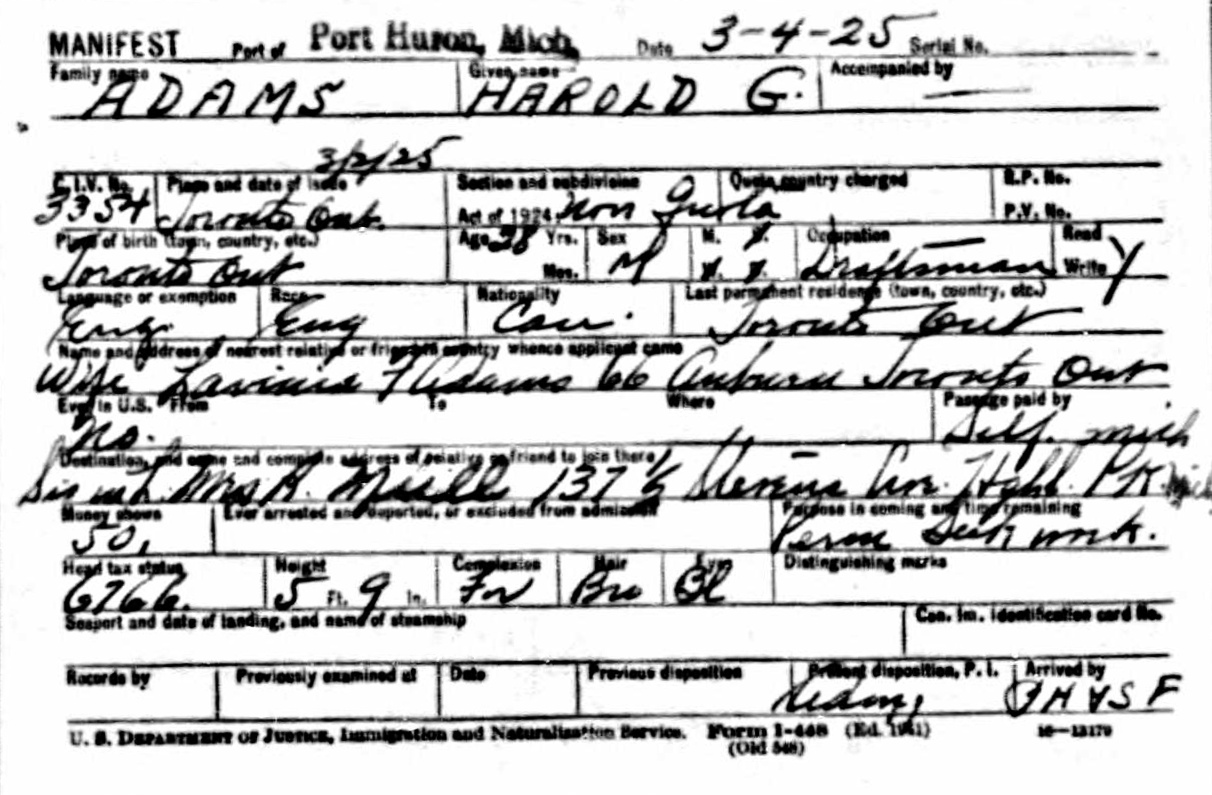 MANIFEST Port of Port Huron, Mich. Date 3-4-25 Serial No.
Family name ADAMS Given name HAROLD G. Accompanied by —
3/2/25
C.I.V. No. 3354 Place and date of issue Toronto Ont. Section and subdivision Act of 1924 Non Quota Quota country charged R.P. No. P.V. No.
Place of birth (town, country, etc.) Toronto Ont Age 28 Yrs. Mos. Sex M M. S. W. D. Occupation Draftsman Read Write Y
Language or exemption Eng. Race Eng Nationality Can. Last permanent residence (town, country, etc.) Toronto Ont
Name and address of nearest relative or friend in country whence applicant came
Wife Lavinia F Adams 66 Auburn Toronto Ont
Ever in U.S. From To Where Passage paid by
No. Self. Mich
Destination, and name and complete address of relative or friend to join there
Sis in L. Mrs K. 137 1/2 Stevens Ave. Highl. Pk Mich
Money shown 50, Ever arrested and deported, or excluded from admission Purpose in coming and time remaining Perm Seek work.
Head tax status 6766. Height 5 Ft. 9 In. Complexion Hair Bro Eyes Bl Distinguishing marks
Seaport and date of landing, and name of steamship Can. Im. identification card No.
Records by Previously examined at Date Previous disposition Present disposition, P. I. Arrived by
U. S. DEPARTMENT OF JUSTICE, Immigration and Naturalization Service. Form I-448 (Ed. 1941) 16—13179
(Old 548)